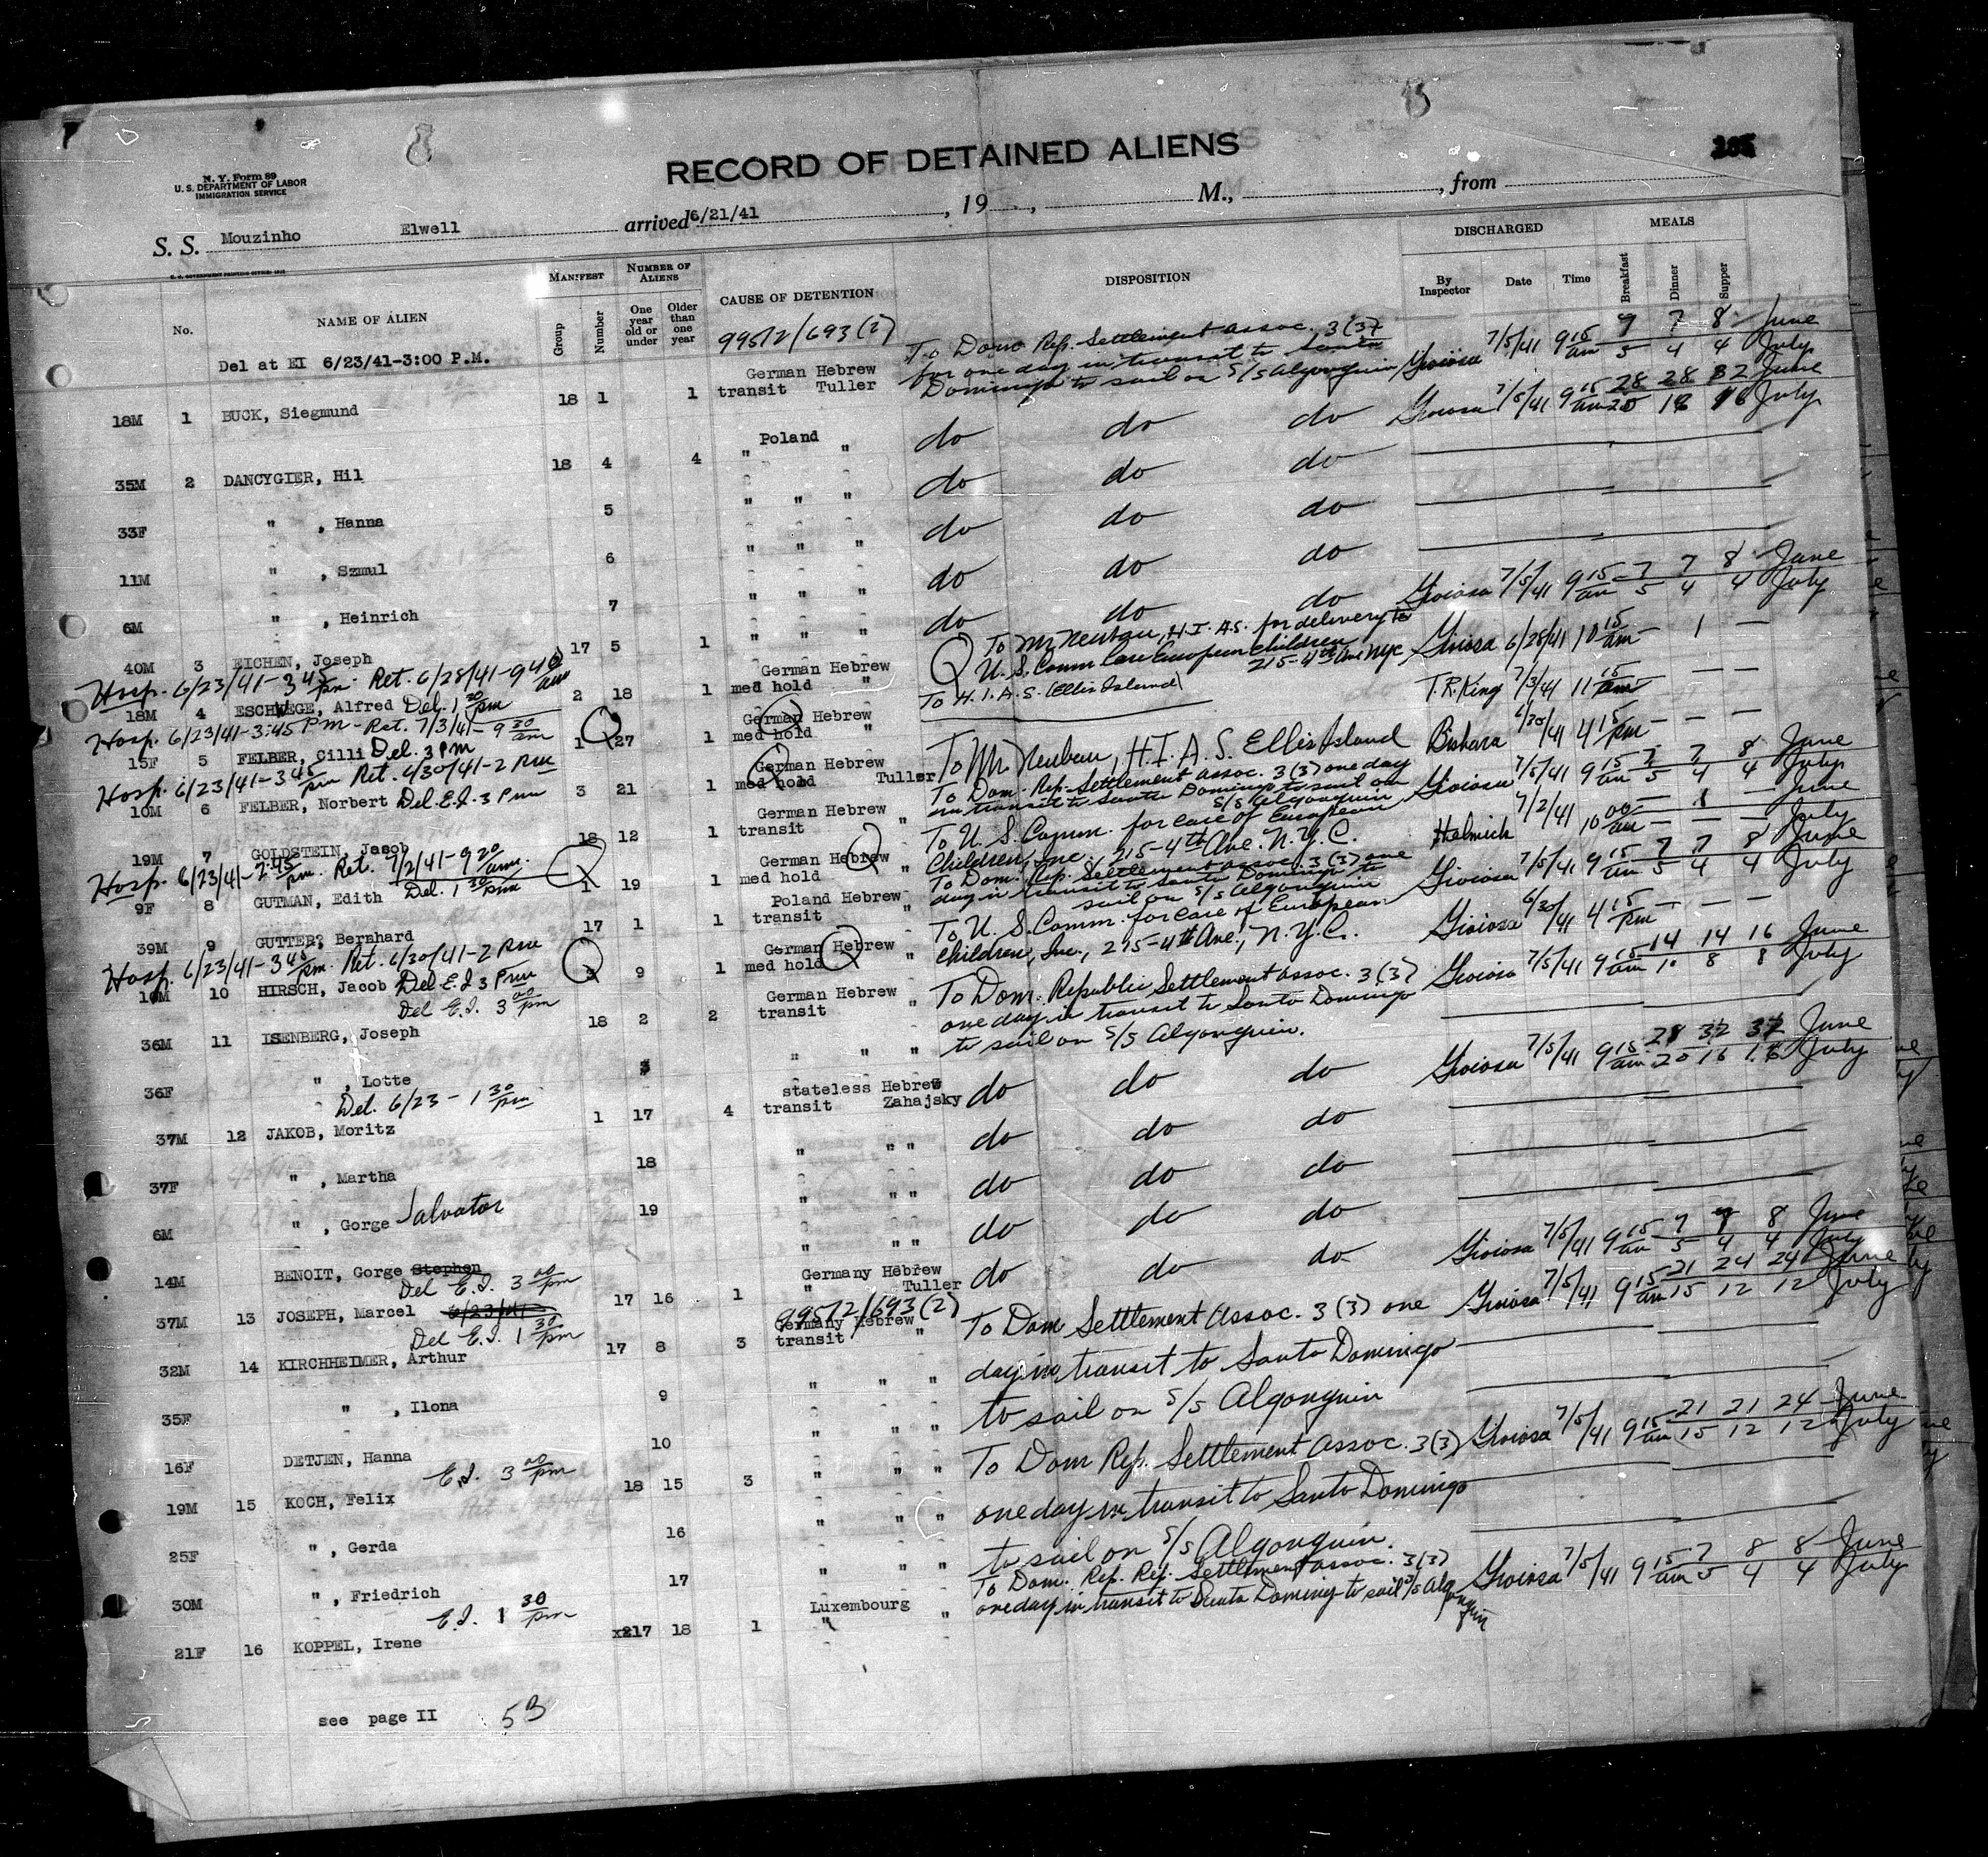 RECORD OF DETAINED ALIENS
N. Y. Form 89
U. S. DEPARTMENT OF LABOR
IMMIGRATION SERVICE
S. S. Mouzinho Elwell arrived 6/21/41 , 19 , M., , from
No. NAME OF ALIEN MANIFEST NUMBER OF ALIENS CAUSE OF DETENTION DISPOSITION DISCHARGED MEALS
Group Number One year old or under Older than one year By Inspector Date Time Breakfast Dinner Supper
Del at EI 6/23/41-3:00 P.M. 99512/693(2)
18M 1 BUCK, Siegmund 18 1 1 German Hebrew transit Tuller To Dom Rep. Settlement Assoc. 3(3) for one day in transit to Santo Domingo to sail on S/S Algonquin Gioiosa 7/5/41 9 15 am 9 7 8 June
5 4 4 July
35M 2 DANCYGIER, Hil 18 4 4 Poland " " do do do Gioiosa 7/5/41 9 15 am 28 28 32 June
20 16 16 July
33F " , Hanna 5 " " " do do do
11M " , Szmul 6 " " " do do do
6M " , Heinrich 7 " " " do do do
40M 3 EICHEN, Joseph 17 5 1 " " " do do do Gioiosa 7/5/41 9 15 am 7 7 8 June
5 4 4 July
Hosp. 6/23/41-3 45 pm. Ret. 6/28/41-9 40 am
18M 4 ESCHWEGE, Alfred Del. 1 30 pm 2 18 1 German Hebrew med hold " To Mr Neubau, H.I.A.S. for delivery to U.S. Comm Care European Children 215-4th Ave NYC Gioiosa 6/28/41 10 15 am — 1 —
Hosp. 6/23/41-3:45 PM - Ret. 7/3/41-9 30 am
15F 5 FELBER, Cilli Del. 3 PM 1 27 1 German Hebrew med hold " To H.I.A.S. (Ellis Island) T.R. King 7/3/41 11 15 am — — —
Hosp. 6/23/41-3 45 pm Ret. 6/30/41-2 PM
10M 6 FELBER, Norbert Del. E.I. 3 PM 3 21 1 German Hebrew med hold Tuller To Mr. Neubau, H.I.A.S. Ellis Island Bishara 6/30/41 4 15 pm — — —
19M 7 GOLDSTEIN, Jacob 18 12 1 German Hebrew transit " To Dom. Rep. Settlement Assoc. 3(3) one day in transit to Santo Domingo to sail on S/S Algonquin Gioiosa 7/5/41 9 15 am 7 7 8 June
5 4 4 July
Hosp. 6/23/41-2:45 pm. Ret. 7/2/41-9 20 am.
9F 8 GUTMAN, Edith Del. 1 30 pm 1 19 1 German Hebrew med hold " To U. S. Comm. for care of European Children, Inc., 215-4th Ave. N.Y.C. Helmich 7/2/41 10 00 am — 1 — June
— — — July
39M 9 GUTTER, Bernhard 17 1 1 Poland Hebrew transit " To Dom. Rep. Settlement Assoc. 3(3) one day in transit to Santo Domingo to sail on S/S Algonquin Gioiosa 7/5/41 9 15 am 7 7 8 June
5 4 4 July
Hosp. 6/23/41-3 45 pm. Ret. 6/30/41-2 PM
10M 10 HIRSCH, Jacob Del E.I. 3 PM 9 1 German Hebrew med hold To U. S. Comm. for care of European Children, Inc., 215-4th Ave., N.Y.C. Gioiosa 6/30/41 4 15 pm — — —
Del E.I. 3 00 pm
36M 11 ISENBERG, Joseph 18 2 2 German Hebrew transit " To Dom. Republic Settlement Assoc. 3(3) one day in transit to Santo Domingo to sail on S/S Algonquin. Gioiosa 7/5/41 9 15 am 14 14 16 June
10 8 8 July
36F " , Lotte 3 " " "
Del. 6/23 - 1 30 pm
37M 12 JAKOB, Moritz 1 17 4 stateless Hebrew transit Zahajsky do do do Gioiosa 7/5/41 9 15 am 28 32 32 June
20 16 16 July
37F " , Martha 18 " " " do do do
6M " , Gorge Salvator 19 " " " do do do
14M BENOIT, Gorge Stephen " " " do do do
Del E.I. 3 00 pm
37M 13 JOSEPH, Marcel 6/23/41 17 16 1 Germany Hebrew " Tuller do do do Gioiosa 7/5/41 9 15 am 7 7 8 June
5 4 4 July
Del E.I. 1 30 pm 99512/693(2)
32M 14 KIRCHHEIMER, Arthur 17 8 3 Germany Hebrew transit " To Dom Settlement Assoc. 3(3) one Gioiosa 7/5/41 9 15 am 21 24 24 June
15 12 12 July
35F " , Ilona 9 " " " day in transit to Santo Domingo
16F DETJEN, Hanna 10 " " " to sail on S/S Algonquin
E.I. 3 00 pm
19M 15 KOCH, Felix 18 15 3 " " " To Dom Rep. Settlement Assoc. 3(3) Gioiosa 7/5/41 9 15 am 21 21 24 June
15 12 12 July
25F " , Gerda 16 " " " one day in transit to Santo Domingo
30M " , Friedrich 17 " " " to sail on S/S Algonquin.
E.I. 1 30 pm
21F 16 KOPPEL, Irene x217 18 1 Luxembourg " " To Dom. Rep. Rep. Settlement Assoc. 3(3) one day in transit to Santo Domingo to sail S/S Algonquin Gioiosa 7/5/41 9 15 am 7 8 8 June
5 4 4 July
see page II 53